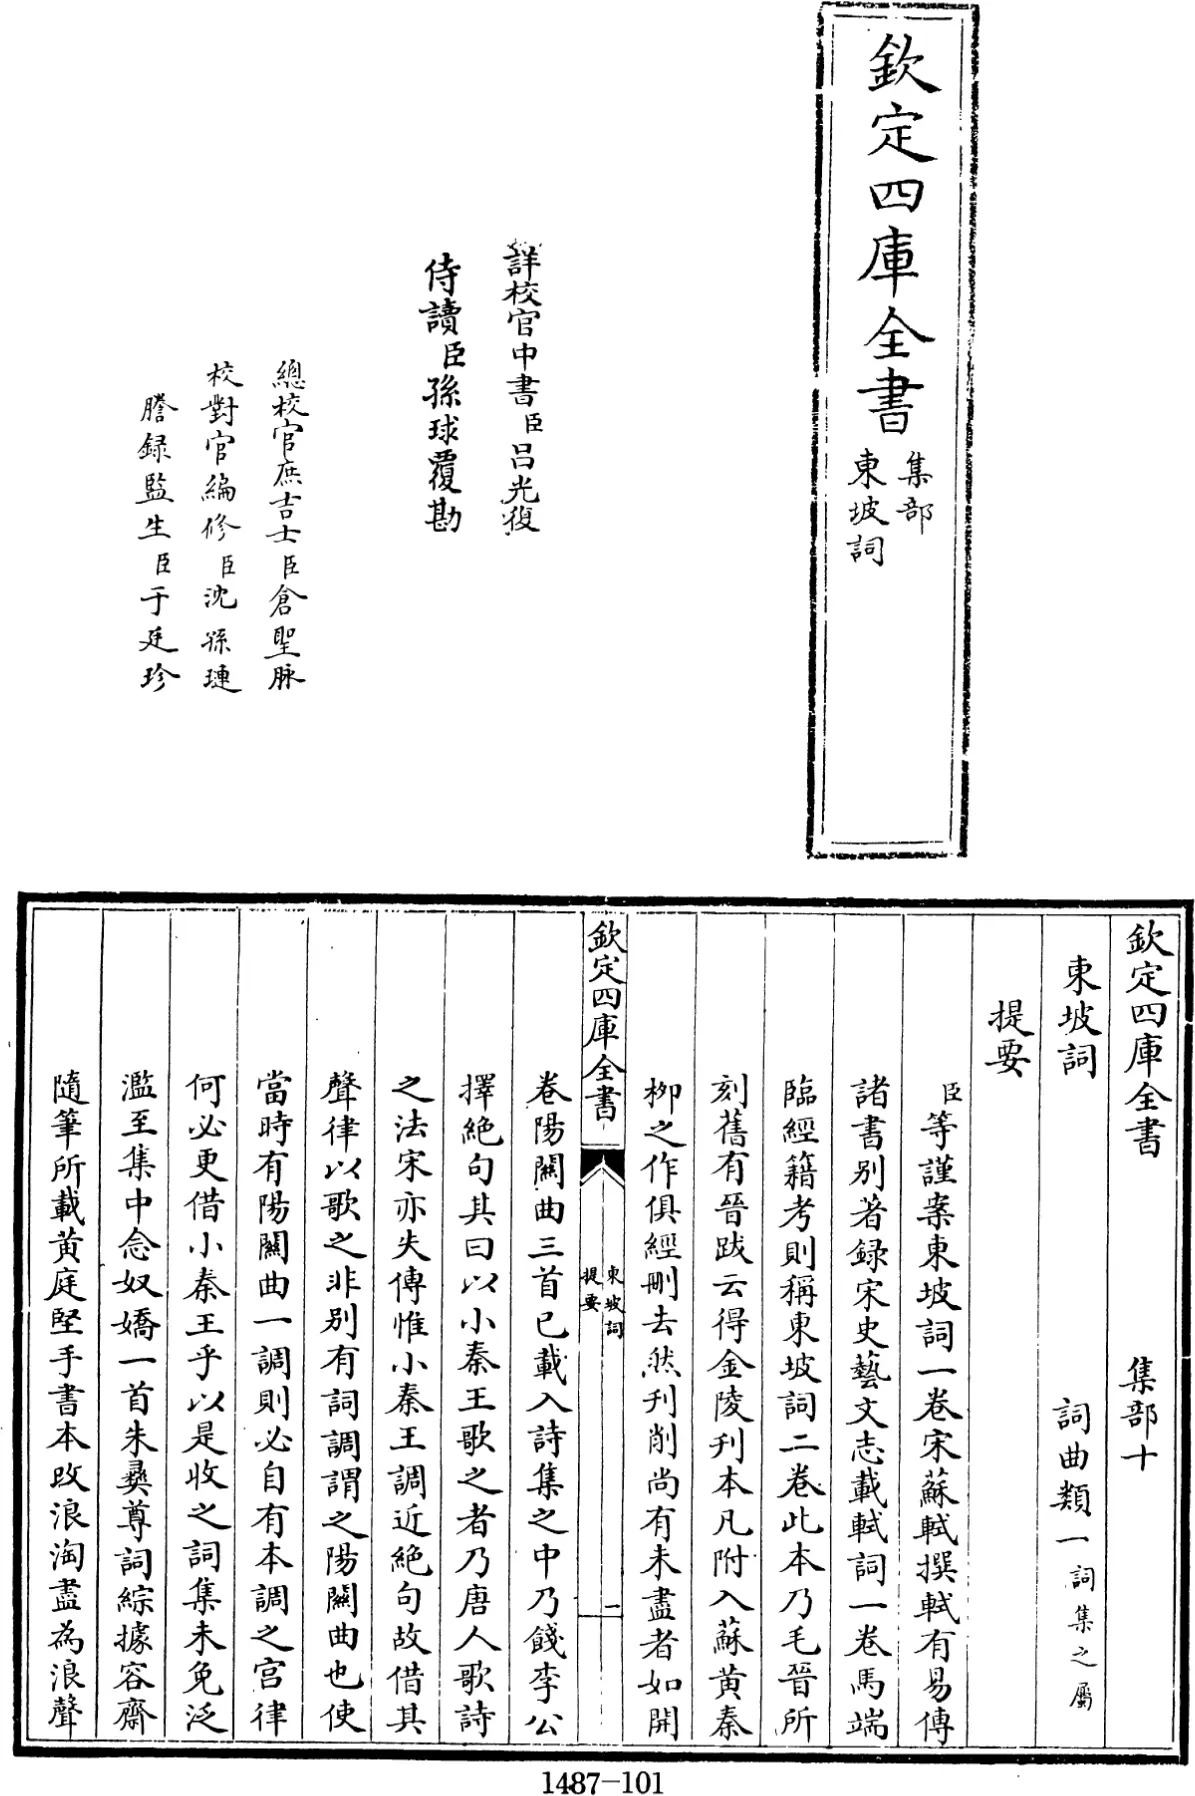 欽定四庫全書
集部
東坡詞
詳校官中書臣呂光復
侍讀臣孫球覆勘
總校官庶吉士臣倉聖脉
校對官編修臣沈孫璉
謄録監生臣于廷珍
欽定四庫全書 集部十
東坡詞 詞曲類一詞集之屬
提要
臣等謹案東坡詞一卷宋蘇軾撰軾有易傳
諸書别著録宋史藝文志載軾詞一卷馬端
臨經籍考則稱東坡詞二卷此本乃毛晉所
刻舊有晉跋云得金陵刋本凡附入蘇黄秦
柳之作俱經刪去然刋削尚有未盡者如開
欽定四庫全書
東坡詞
提要
一
卷陽關曲三首已載入詩集之中乃餞李公
擇絶句其曰以小秦王歌之者乃唐人歌詩
之法宋亦失傳惟小秦王調近絶句故借其
聲律以歌之非别有詞調謂之陽關曲也使
當時有陽關曲一調則必自有本調之宫律
何必更借小秦王乎以是收之詞集未免泛
濫至集中念奴嬌一首朱彝尊詞綜據容齋
隨筆所載黄庭堅手書本改浪淘盡為浪聲
1487-101